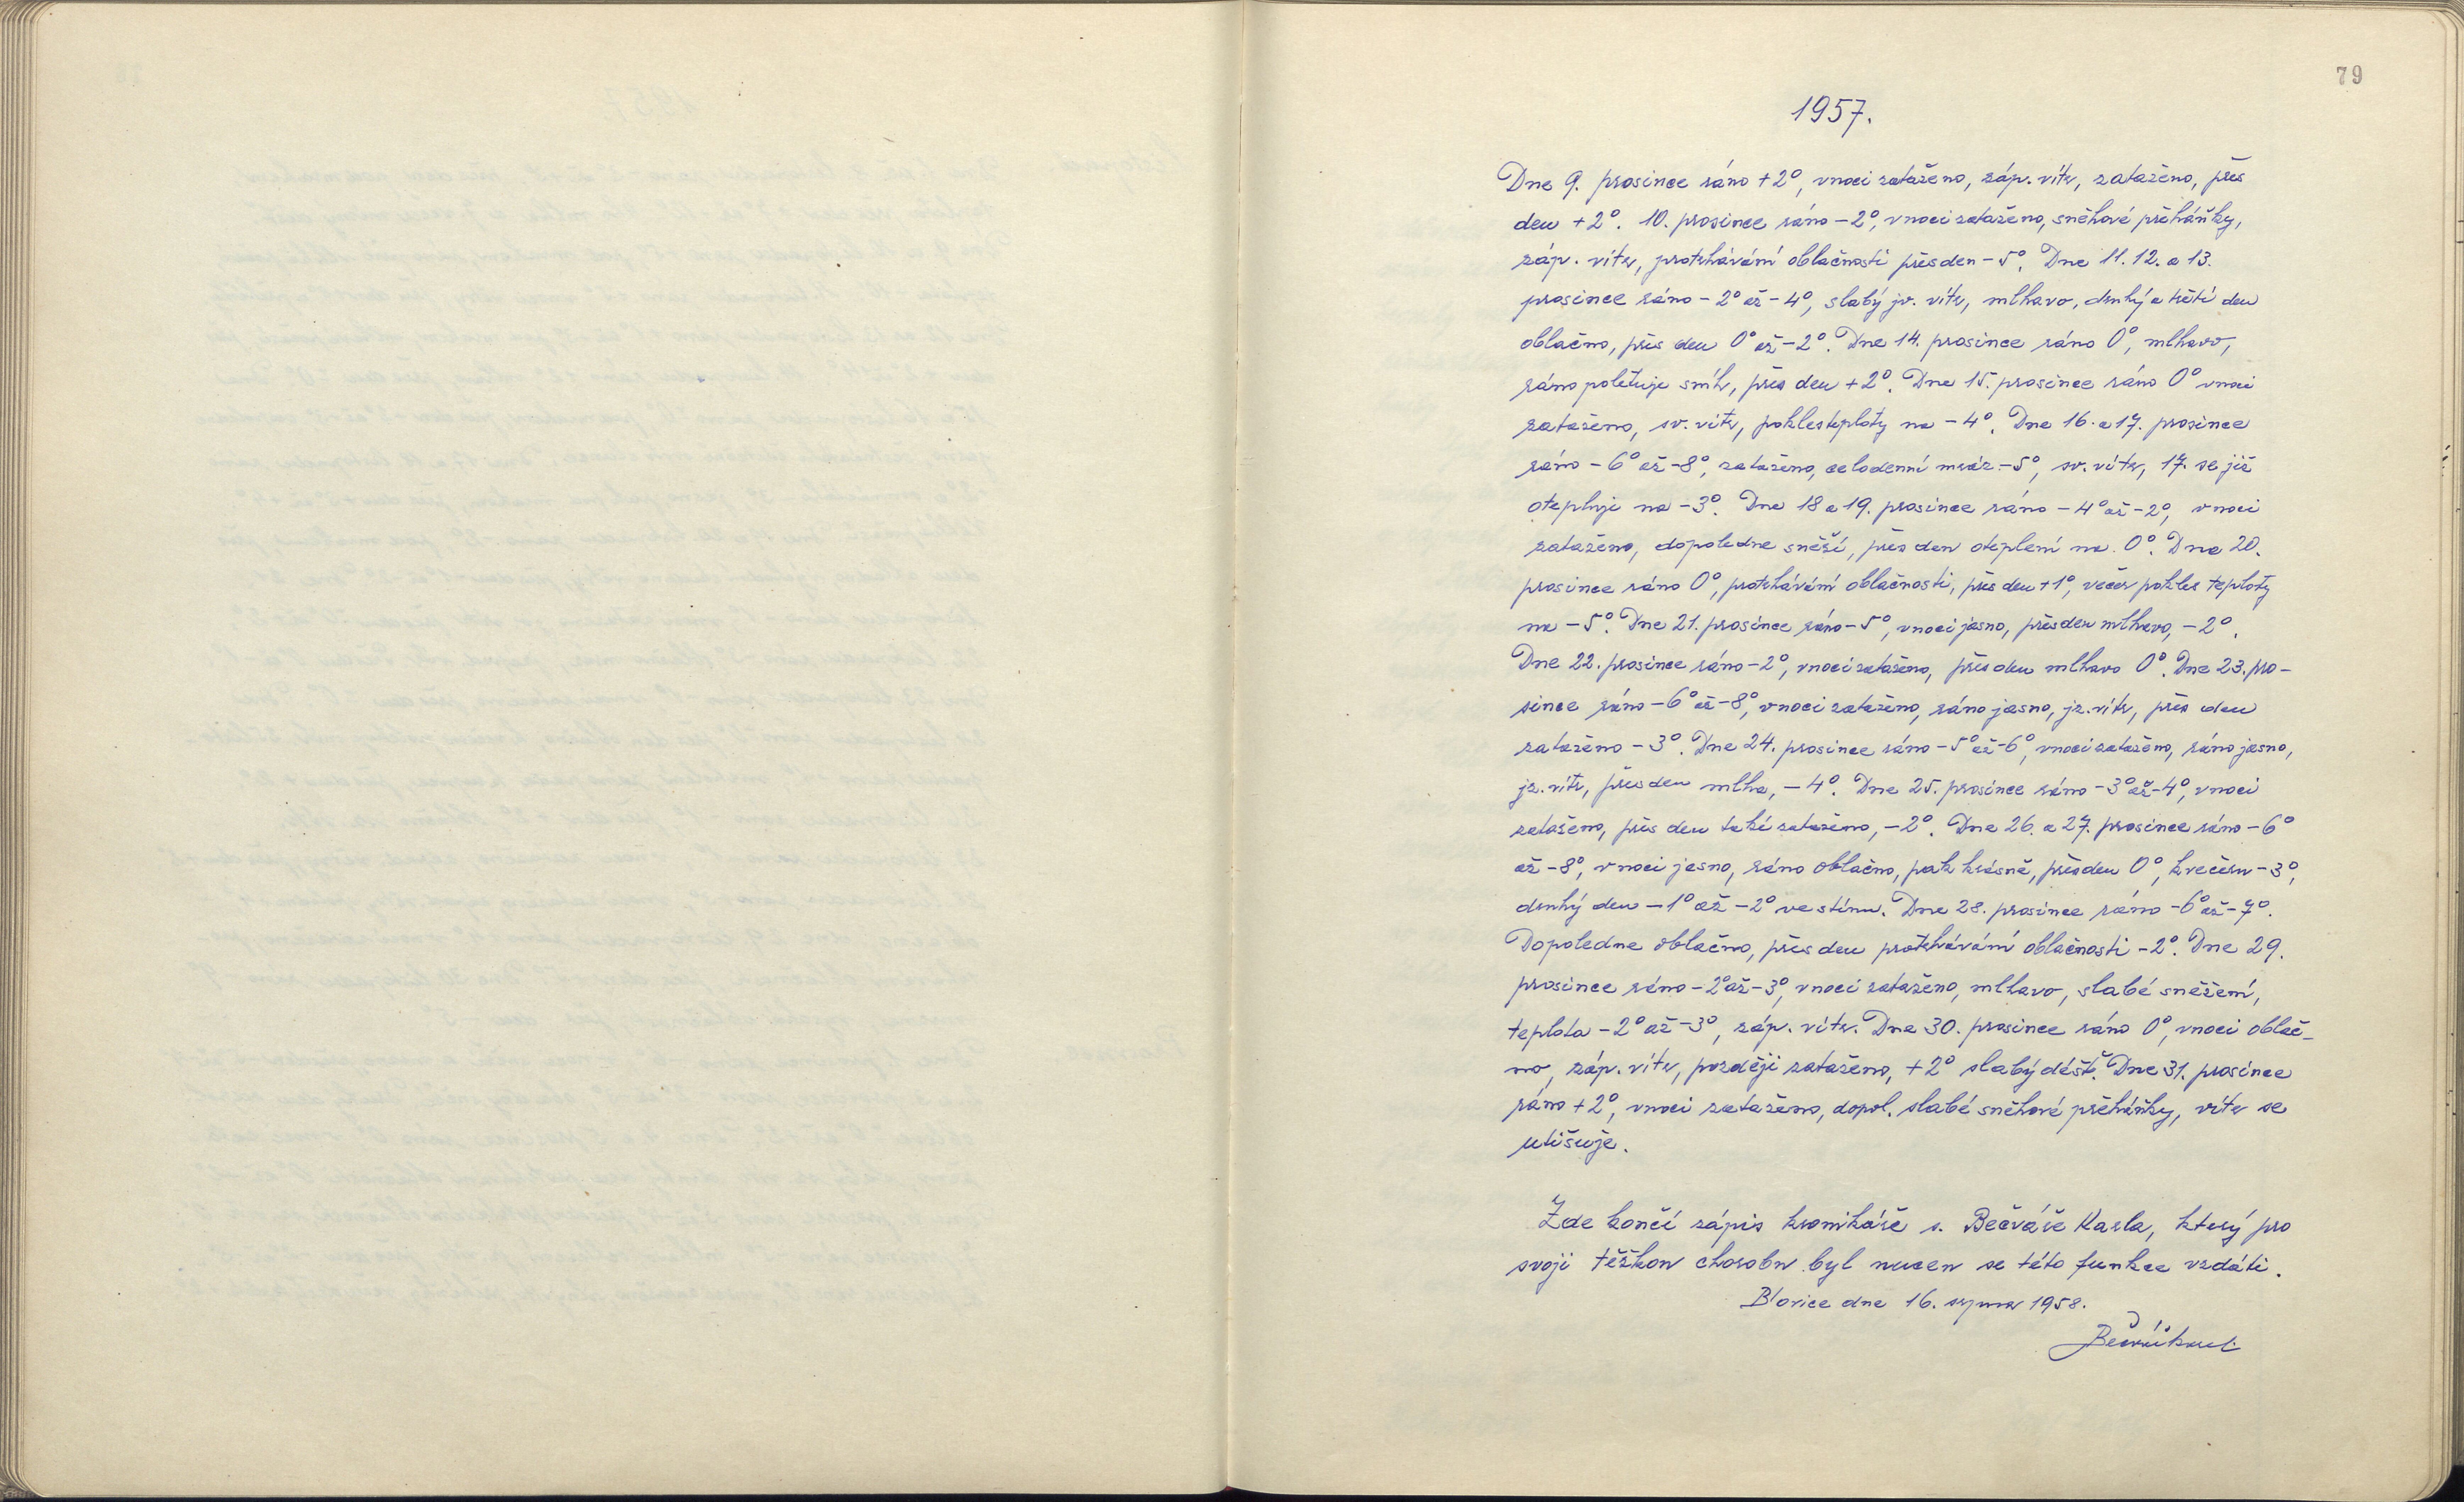 79
1957.
Dne 9. prosince ráno +2°, vnoci zataženo, záp. vítr, zataženo, přes
den +2°. 10. prosince ráno -2°, vnoci zataženo, sněhové přeháňky,
záp. vítr, protrhávání oblačnosti přes den -5°. Dne 11. 12. a 13.
prosince ráno -2° až -4°, slabý jv. vítr, mlhavo, druhý a třetí den
oblačno, přes den 0° až -2°. Dne 14. prosince ráno 0°, mlhavo,
ráno poletuje sníh, přes den +2°. Dne 15. prosince ráno 0° vnoci
zataženo, sv. vítr, pokles teploty na -4°. Dne 16. a 17. prosince
ráno -6° až -8°, zataženo, celodenní mráz -5°, sv. vítr, 17. se již
otepluje na -3°. Dne 18 a 19. prosince ráno -4° až -2°, vnoci
zataženo, dopoledne sněží, přes den oteplení na 0°. Dne 20.
prosince ráno 0°, protrhávání oblačnosti, přes den +1°, večer pokles teploty
na -5°. Dne 21. prosince ráno -5°, vnoci jasno, přes den mlhavo, -2°.
Dne 22. prosince ráno -2°, vnoci zataženo, přes den mlhavo 0°. Dne 23. pro-
since ráno -6° až -8°, vnoci zataženo, ráno jasno, jz. vítr, přes den
zataženo -3°. Dne 24. prosince ráno -5° až -6°, vnoci zataženo, ráno jasno,
jz. vítr, přes den mlha, -4°. Dne 25. prosince ráno -3° až -4°, vnoci
zataženo, přes den také zataženo, -2°. Dne 26. a 27. prosince ráno -6°
až -8°, vnoci jasno, ráno oblačno, pak krásně, přes den 0°, kvečeru -3°,
druhý den -1° až -2° ve stínu. Dne 28. prosince ráno -6° až -7°.
Dopoledne oblačno, přes den protrhávání oblačnosti -2°. Dne 29.
prosince ráno -2° až -3°, vnoci zataženo, mlhavo, slabé sněžení,
teplota -2° až -3°, záp. vítr. Dne 30. prosince ráno 0°, vnoci oblač-
no, záp. vítr, později zataženo, +2° slabý déšť. Dne 31. prosince
ráno +2°, vnoci zataženo, dopol. slabé sněhové přeháňky, vítr se
utišuje.
Zde končí zápis kronikáře s. Bečváře Karla, který pro
svoji těžkou chorobu byl nucen se této funkce vzdáti.
Blovice dne 16. srpna 1958.